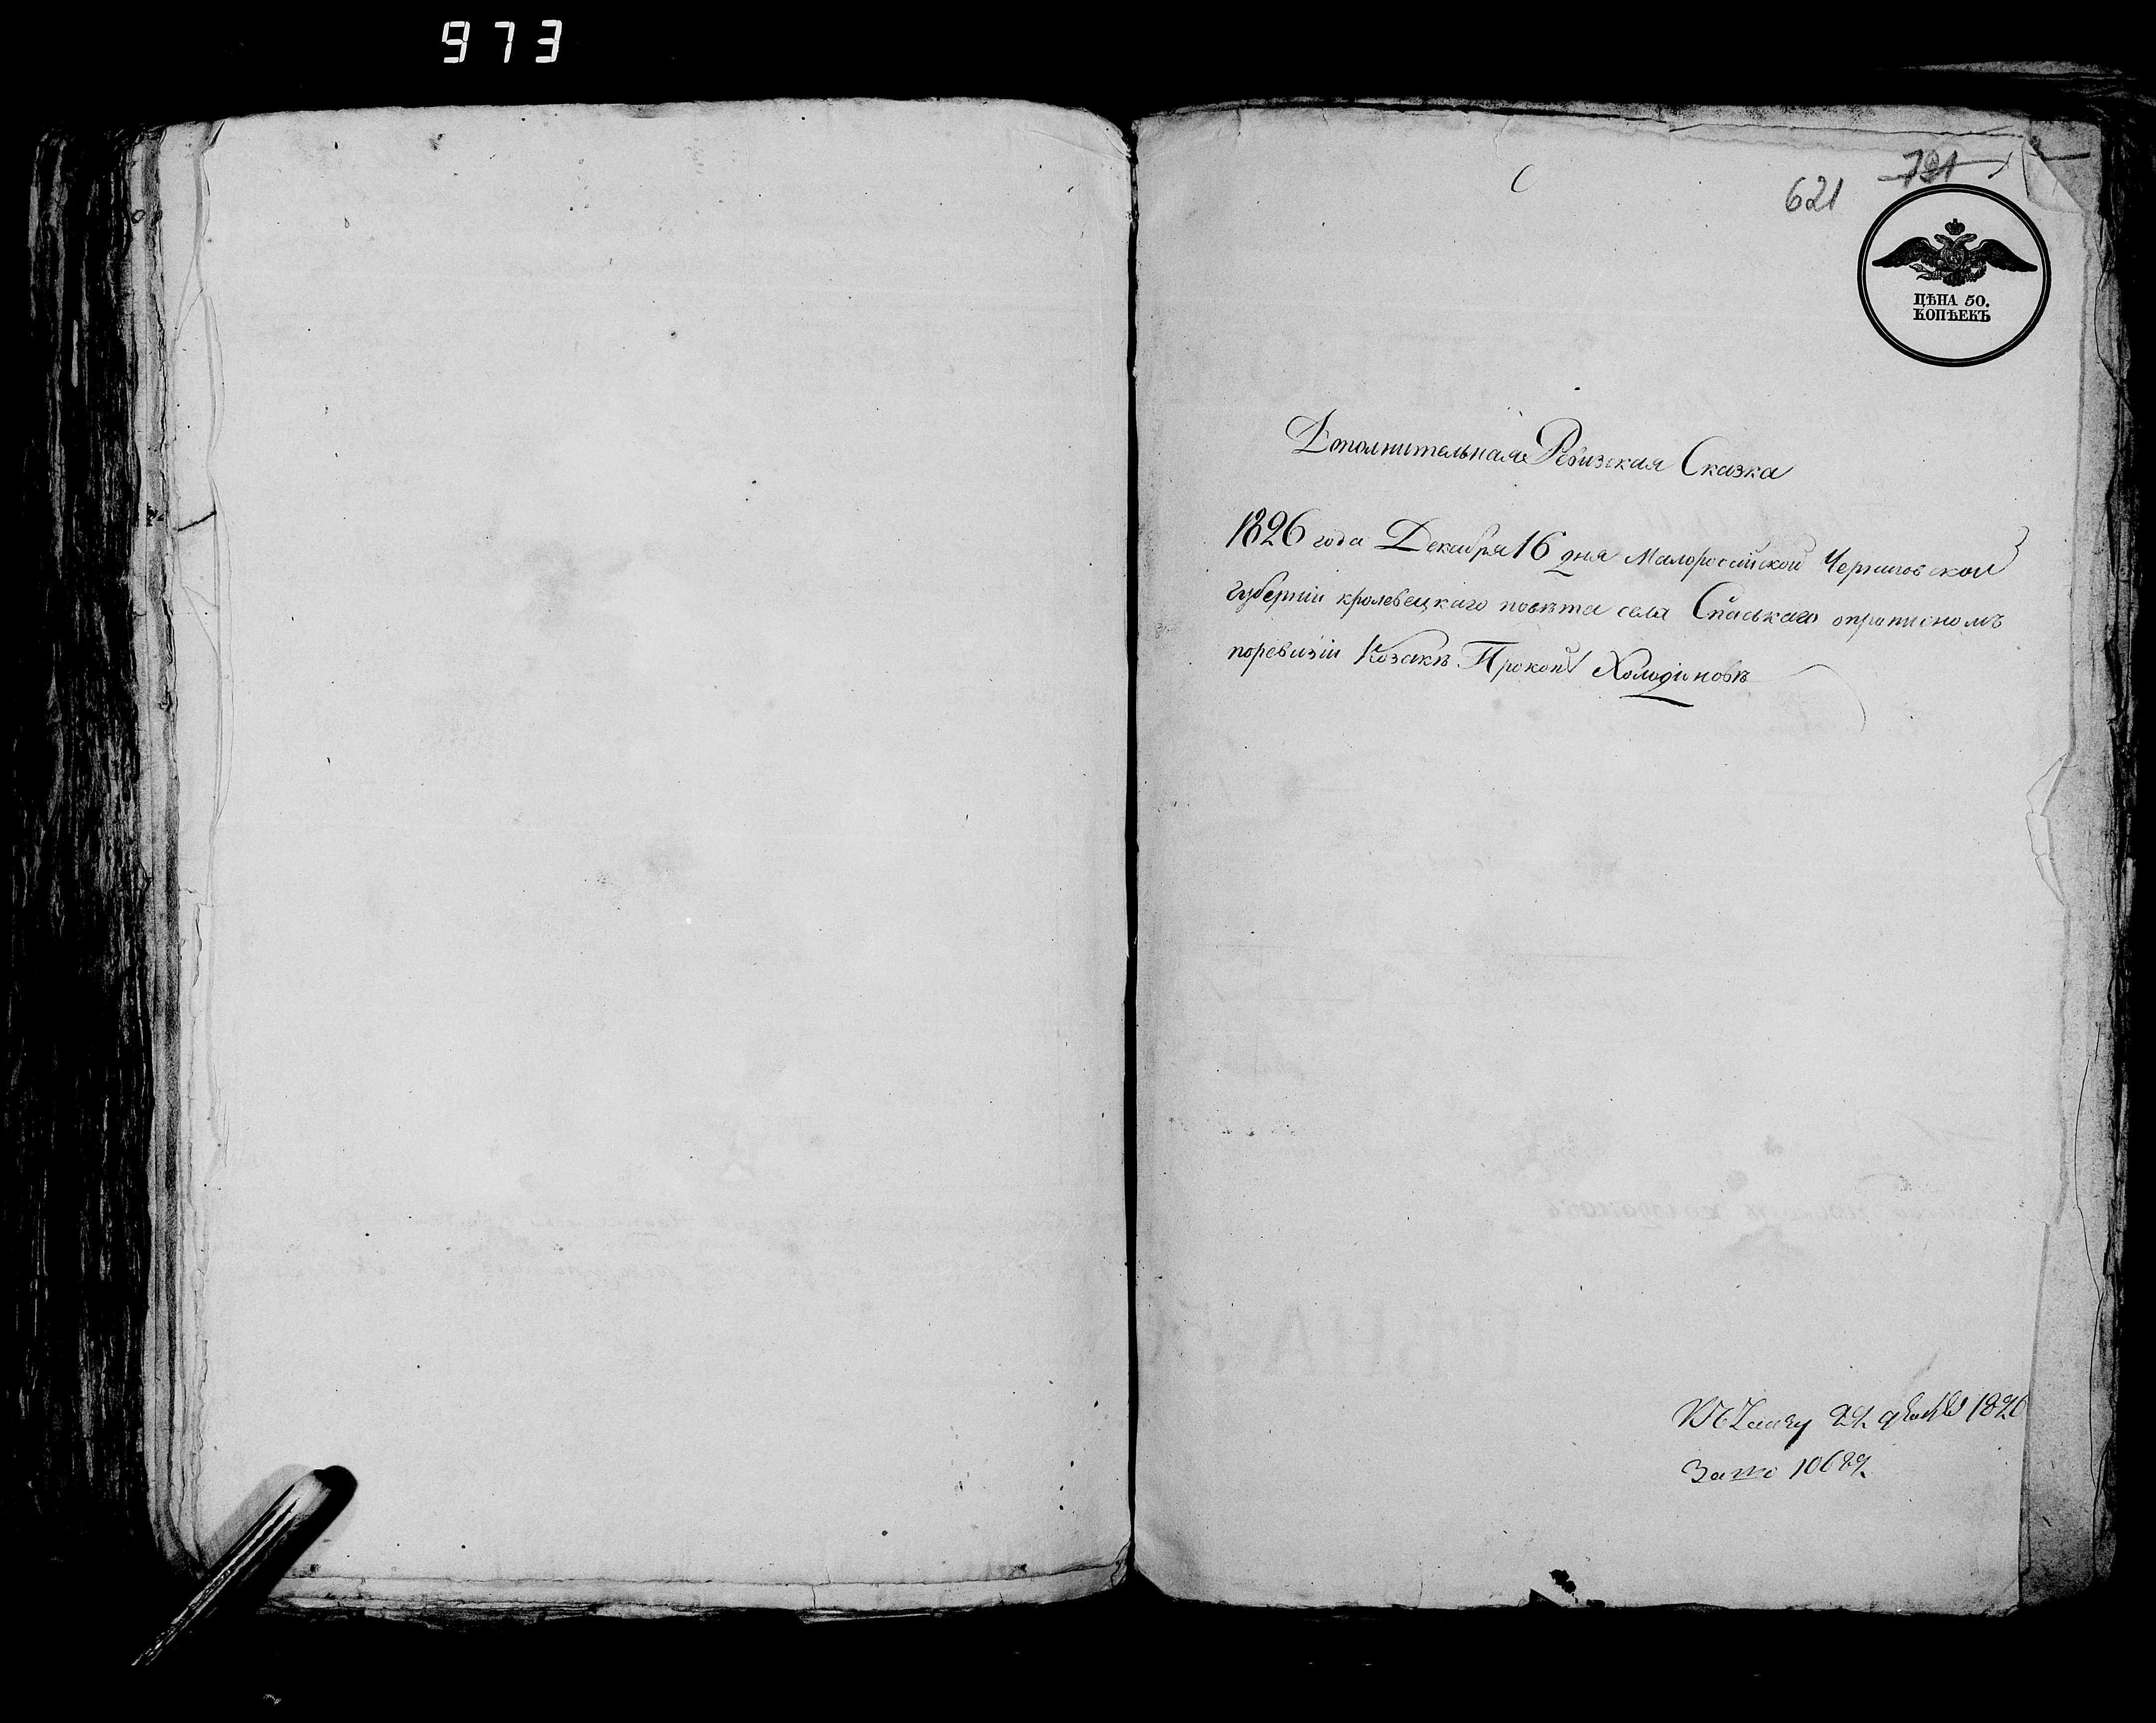 973
621
791
ЦѢНА 50.
КОПѢЕКЪ
Дополнительная Ревизская Сказка
1826 года Декабря 16 дня Малоросийской Черниговской
губернии кролевецкаго повѣта села Спаськаго опрописномъ
поревизіи Козакѣ Прокопѣ Холодіоновѣ
22 1826
За № 10682